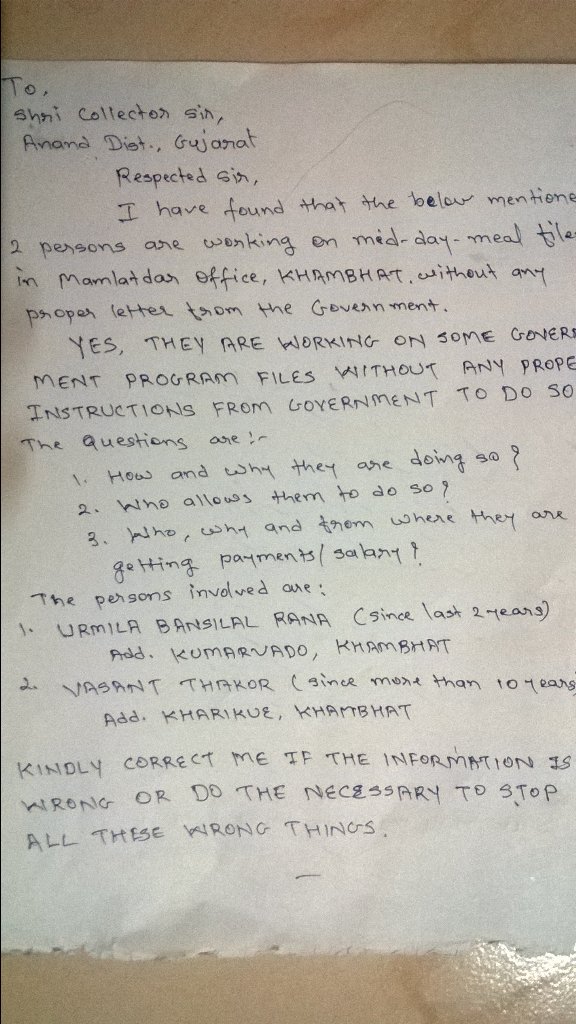 To,
Shri Collector Sir,
Anand Dist., Gujarat
Respected Sir,
I have found that the below mentione
2 persons are working on mid-day-meal file
in Mamlatdar Office, KHAMBHAT. without any
proper letter from the Government.
YES, THEY ARE WORKING ON SOME GOVERN
MENT PROGRAM FILES WITHOUT ANY PROPE
INSTRUCTIONS FROM GOVERNMENT TO DO SO
The Questions are :-
1. How and why they are doing so ?
2. Who allows them to do so ?
3. Who, why and from where they are
getting payments/ salary ?
The persons involved are :
1. URMILA BANSILAL RANA (since last 2 years)
Add. KUMARVADO, KHAMBHAT
2. VASANT THAKOR (since more than 10 years
Add. KHARIKUE, KHAMBHAT
KINDLY CORRECT ME IF THE INFORMATION IS
WRONG OR DO THE NECESSARY TO STOP
ALL THESE WRONG THINGS.